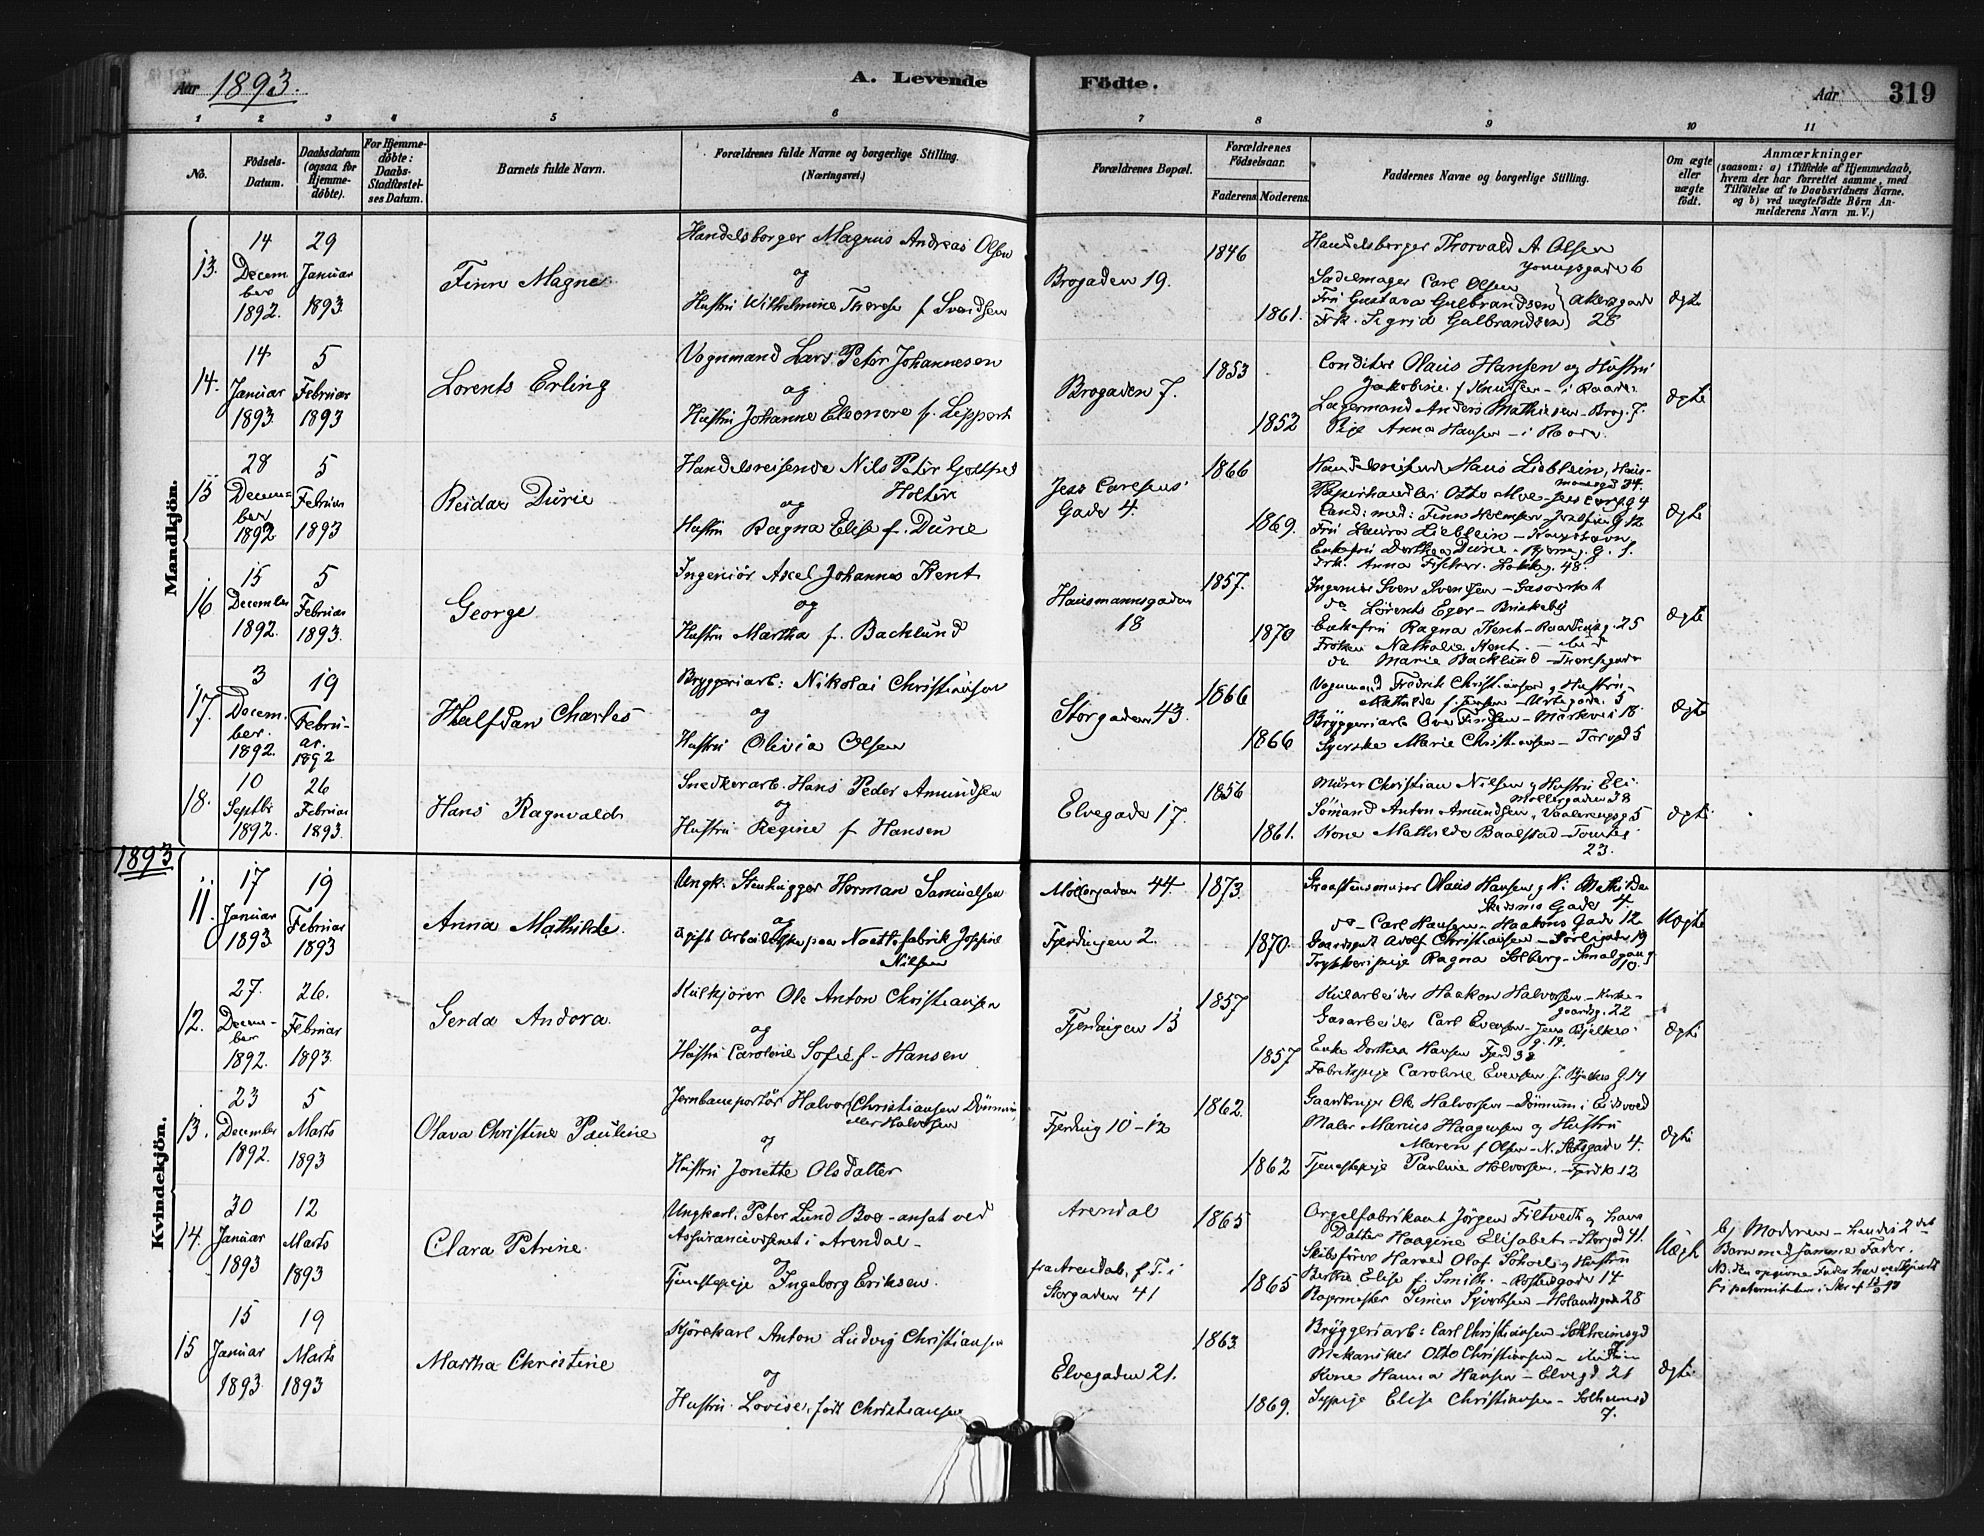 Aar 1893.
A. Levende
Födte.
Aar
319
1 2 3 4 5 6 7 8 9 10 11
No.
Födsels-
Datum.
Daabsdatum
(ogsaa for
Hjemme-
döbte).
For Hjemme-
döbte:
Daabs-
Stadfæstel-
ses Datum.
Barnets fulde Navn.
Forældrenes fulde Navne og borgerlige Stilling.
(Næringsvei.)
Forældrenes Bopæl.
Forældrenes
Födselsaar.
Faderens Moderens
Faddernes Navne og borgerlige Stilling.
Om ægte
eller
uægte
födt.
Anmærkninger
(saasom: a) i Tilfælde af Hjemmedaab,
hvem der har forrettet samme, med
Tilföielse af to Daabsvidners Navne.
og b) ved uægtefödte Börn An-
melderens Navn m. V.)
Mandkjön.
13.
14
Decem
ber
1892.
29
Januar
1893.
Finn Magne
Handelsborger Magnus Andreas Olsen
og
Hustru Wilhelmine Therese f. Svendsen
Brogaden 19.
1846
1861.
Handelsborger Thorvald A. Olsen
Youngsgade 6
Sadelmager Carl Olsen
Fru Gustava Gulbrandsen
Frk. Sigrid Gulbrandsen
Akersgade
28
Ægte
14.
14
Januar
1893.
5
Februar
1893
Lorents Erling
Vognmand Lars Peter Johannesen
og
Hustru Johanne Eleonore f. Leppert
Brogaden 7.
1853
1852
Conditor Olaus Hansen og Hustru
Jakobine f. Knudsen - i Raade.
Lagermand Anders Mathisen - Brog. 7.
Pige Anna Hansen - i Raade.
Ægte
15
28
Decem-
ber
1892
5
Februar
1893
Reidar Durie
Handelsreisende Nils Peter Gottfred
Holter
og
Hustru Ragna Elise f. Durie
Jess Carlsens
Gade 4.
1866
1869.
Handelsreisende Hans Lieblein, Haus-
mannsgd 34.
Papirhandler Otto Moe - Jess Carls. g 4
Cand: med: Finn Holmsen Josefines G 12
Fru Laura Lieblein -
Enkefru Dorthea Durie - Bjerreg. G. 1.
Frk. Anna Fischer. 48.
Ægte
16
15
December
1892.
5
Februar
1893.
George
Ingeniör Axel Johannes Kent
og
Hustru Martha f. Backlund
Hausmannsgaden
18
1857.
1870
Ingeniör Sven Svensen - Gasværket
do Lorents Eger - Briskeby
Enkefru Ragna Kent - 25
Fröken Nathalie Kent. -
do Marie Backlund - Theresegade
Ægte
17.
3
Decem-
ber.
1892.
19
Februar-
ar.
1892
Halfdan Charles
Bryggeriarb: Nikolai Christiansen
og
Hustru Olivia Olsen
Storgaden 43.
1866
1866
Vognmand Fredrik Christiansen og Hustru
Mathilde f. Jensen - Urtegade. 5
Bryggeriarb. Ove Findsen - Markvei 18.
Syerske Marie Christiansen - Torvgd 5
Ægte
18.
10
Septbr
1892.
26
Februar
1893.
Hans Ragnvald
Snedkerarb. Hans Peder Amundsen
og
Hustru Regine f. Hansen
Elvegade 17.
1856
1861.
Murer Christian Nilsen og Hustru Eli
Mollergaden 38
Sömand Anton Amundsen, Vaalerengg. 5
Kone Mathilde Baalstad -
23.
Ægte
1893
Kvindekjön.
11.
17
Januar
1893.
19
Februar
1893
Anna Mathilde.
Ungk. Stenhugger Herman Samuelsen
og
ugift Arbeiderske paa Naattefabrik Josefine
Nilsen
Möllergaden 44.
Fjerdingen 2.
1873.
1870.
Olaus Hansen og H. Mathilde
Skedsmo Gade 4.
do - Carl Hansen - Haakons Gade 12
Gaardsgut Adolf Christiansen - Sörligaden 19
Trykkeripige Ragna Solberg - Smalgang
10.
Uægte
12.
27.
Decem-
ber
1892.
26.
Februar
1893.
Gerda Andora.
Kulkjörer Ole Anton Christiansen
og
Hustru Caroline Sofie f. Hansen
Fjerdingen 13
1857
1857
Kularbeider Haakon Halvorsen - Kirke-
gaardsg. 22
Gasarbeider Carl Evensen - Jens Bjelkes
g. 14.
Enke Dorthea Hansen Fjerd 38
Fabrikspige Caroline Evensen J. Bjelkes g 14
Ægte
13.
23
December
1892.
5
Marts
1893
Olava Christine Pauline
Jernbaneportör Halvor Christiansen Dönnum
eller Halvorsen
og
Hustru Jonette Olsdatter
Fjerding 10-12
1862.
1862
Gaardbruger Ole Halvorsen - Dönnum i Eidsvold
Maler Marius Haagensen og Hustru
Maren f. Olsen - N. Slotsgade 4.
Tjenestepige Pauline Halvorsen. - Fjerd 10 12
Ægte
14.
30
Januar
1893
12
Marts
1893
Clara Petrine.
Ungkarl. Peter Lund Boe - ansat ved
Assurancevæsenet i Arendal -
og
Tjenestepige Ingeborg Eriksen.
Arendal
fra Arendal, f. T. i
Storgaden 41
1865
1865
Orgelfabrikant Jörgen Filtvedt og hans
Datter Haagine Elisabet - Storgd 41.
Skibsförer Harald Olaf Sohoel og Hustru
Berthe Elise f. Smith. - Rostedsgade 14
Bagermester Simen Syvertsen - Holandsgade 28
Uægte
b) Moderen - hendes 2det
Barn med samme Fader.
NB. den opgivne Fader har vedkjendt
sig paterniteten i Skr. af
15
15
Januar
1893.
19
Marts
1893
Martha Christine
Kjörekarl Anton Ludvig Christiansen
og
Hustru Lovise, född Christiansen
Elvegaden 21.
1863.
1869.
Bryggeriarb: Carl Christiansen - Solheimsgd
7
Mekaniker Otto Christiansen -
Kone Hanna Hansen - Elvegd. 21
Sypige Elise Christiansen - Solheimsgd
7.
Ægte